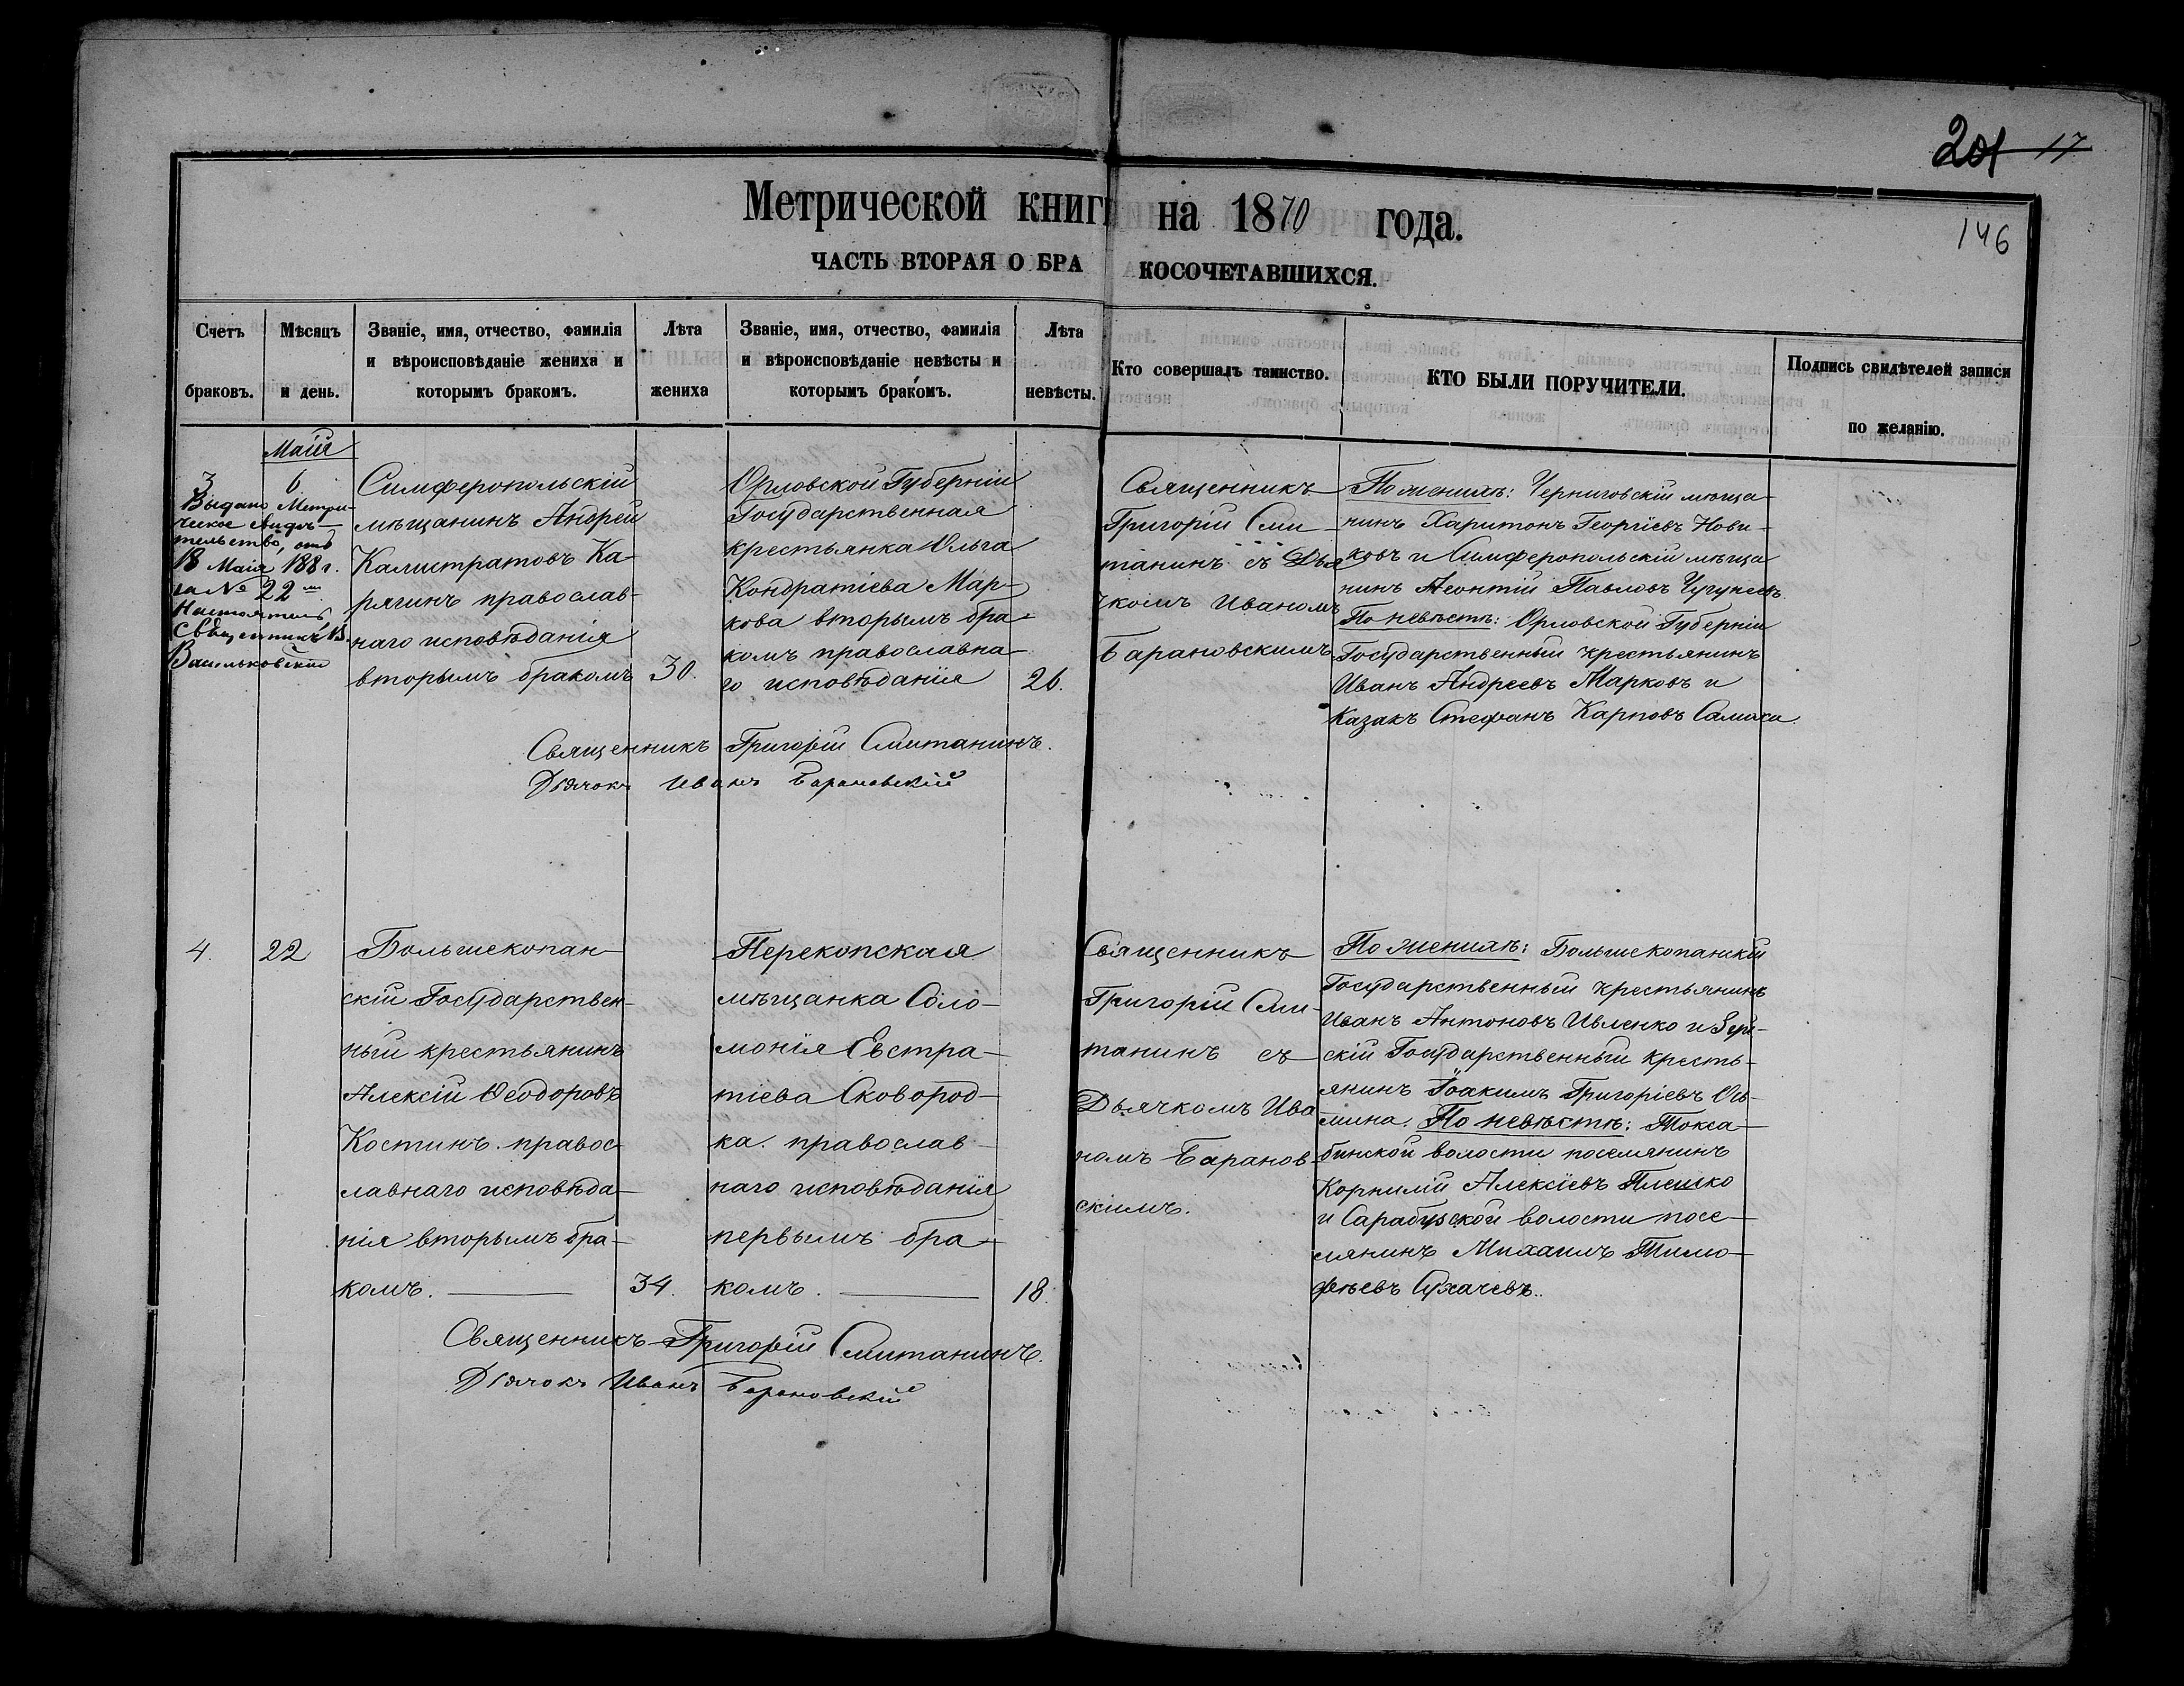 201 17
146
Метрической книги на 1870 года.
ЧАСТЬ ВТОРАЯ О БРАКОСОЧЕТАВШИХСЯ.
Счетъ браковъ.
Мѣсяцъ и день.
Званіе, имя, отчество, фамилія
и вѣроисповѣданіе жениха и
которымъ бракомъ.
Лѣта
жениха
Званіе, имя, отчество, фамилія
и вѣроисповѣданіе невѣсты и
которымъ бракомъ.
Лѣта
невѣсты.
Кто совершалъ таинство.
КТО БЫЛИ ПОРУЧИТЕЛИ.
Подпись свидѣтелей записи
по желанію.
Маія
3
6
Выдано Метри-
ческое свидѣ-
тельство, отъ
18 Маія 188 г.
за № 22
Настоятель
Священникъ В.
Васильковскій
Симферопольскій
мѣщанинъ Андрей
Калистратовъ Ка-
рягинъ православ-
наго исповѣданія
вторымъ бракомъ
30.
Орловской Губерніи
Государственная
крестьянка Ольга
Кондратіева Мар-
кова вторымъ бра-
комъ православна-
го исповѣданія
26.
Священникъ
Григорій Сми-
танинъ съ Дья
чкомъ Иваномъ
Барановскимъ.
По женихѣ: Черниговскій мѣща-
нинъ Харитонъ Георгіевъ Нови-
ковъ и Симферопольскій мѣща
нинъ Леонтій Павловъ Чугуневъ.
По невѣстѣ: Орловской Губерніи
Государственный крестьянинъ
Иванъ Андреевъ Марковъ и
Казакъ Стефанъ Карповъ Самоха.
Священникъ Григорій Смитанинъ.
Дьячокъ Иванъ Барановскій
4.
22
Большекопан-
скій Государствен-
ный крестьянинъ
Алексій Ѳеодоровъ
Костинъ. правос-
лавнаго исповѣда-
нія вторымъ бра-
комъ.
34.
Перекопская
мѣщанка Соло-
монія Евстра-
тіева Сковород-
ка. православ-
наго исповѣданія
первымъ бра-
комъ.
18.
Священникъ
Григорій Сми-
танинъ съ
Дьячкомъ Ива
номъ Баранов-
скимъ.
По женихѣ: Большекопанскій
Государственный крестьянинъ
Иванъ Антоновъ Ивленко и
скій Государственный кресть-
янинъ Іоакимъ Григоріевъ Ѳь-
мина. По невѣстѣ: Токса-
бинской волости поселянинъ
Корнилій Алексіевъ Плешко
и Сарабузской волости посе-
лянинъ Михаилъ Тимо-
феѣевъ Сухачевъ.
Священникъ Григорій Смитанинъ.
Дьячокъ Иванъ Барановскій